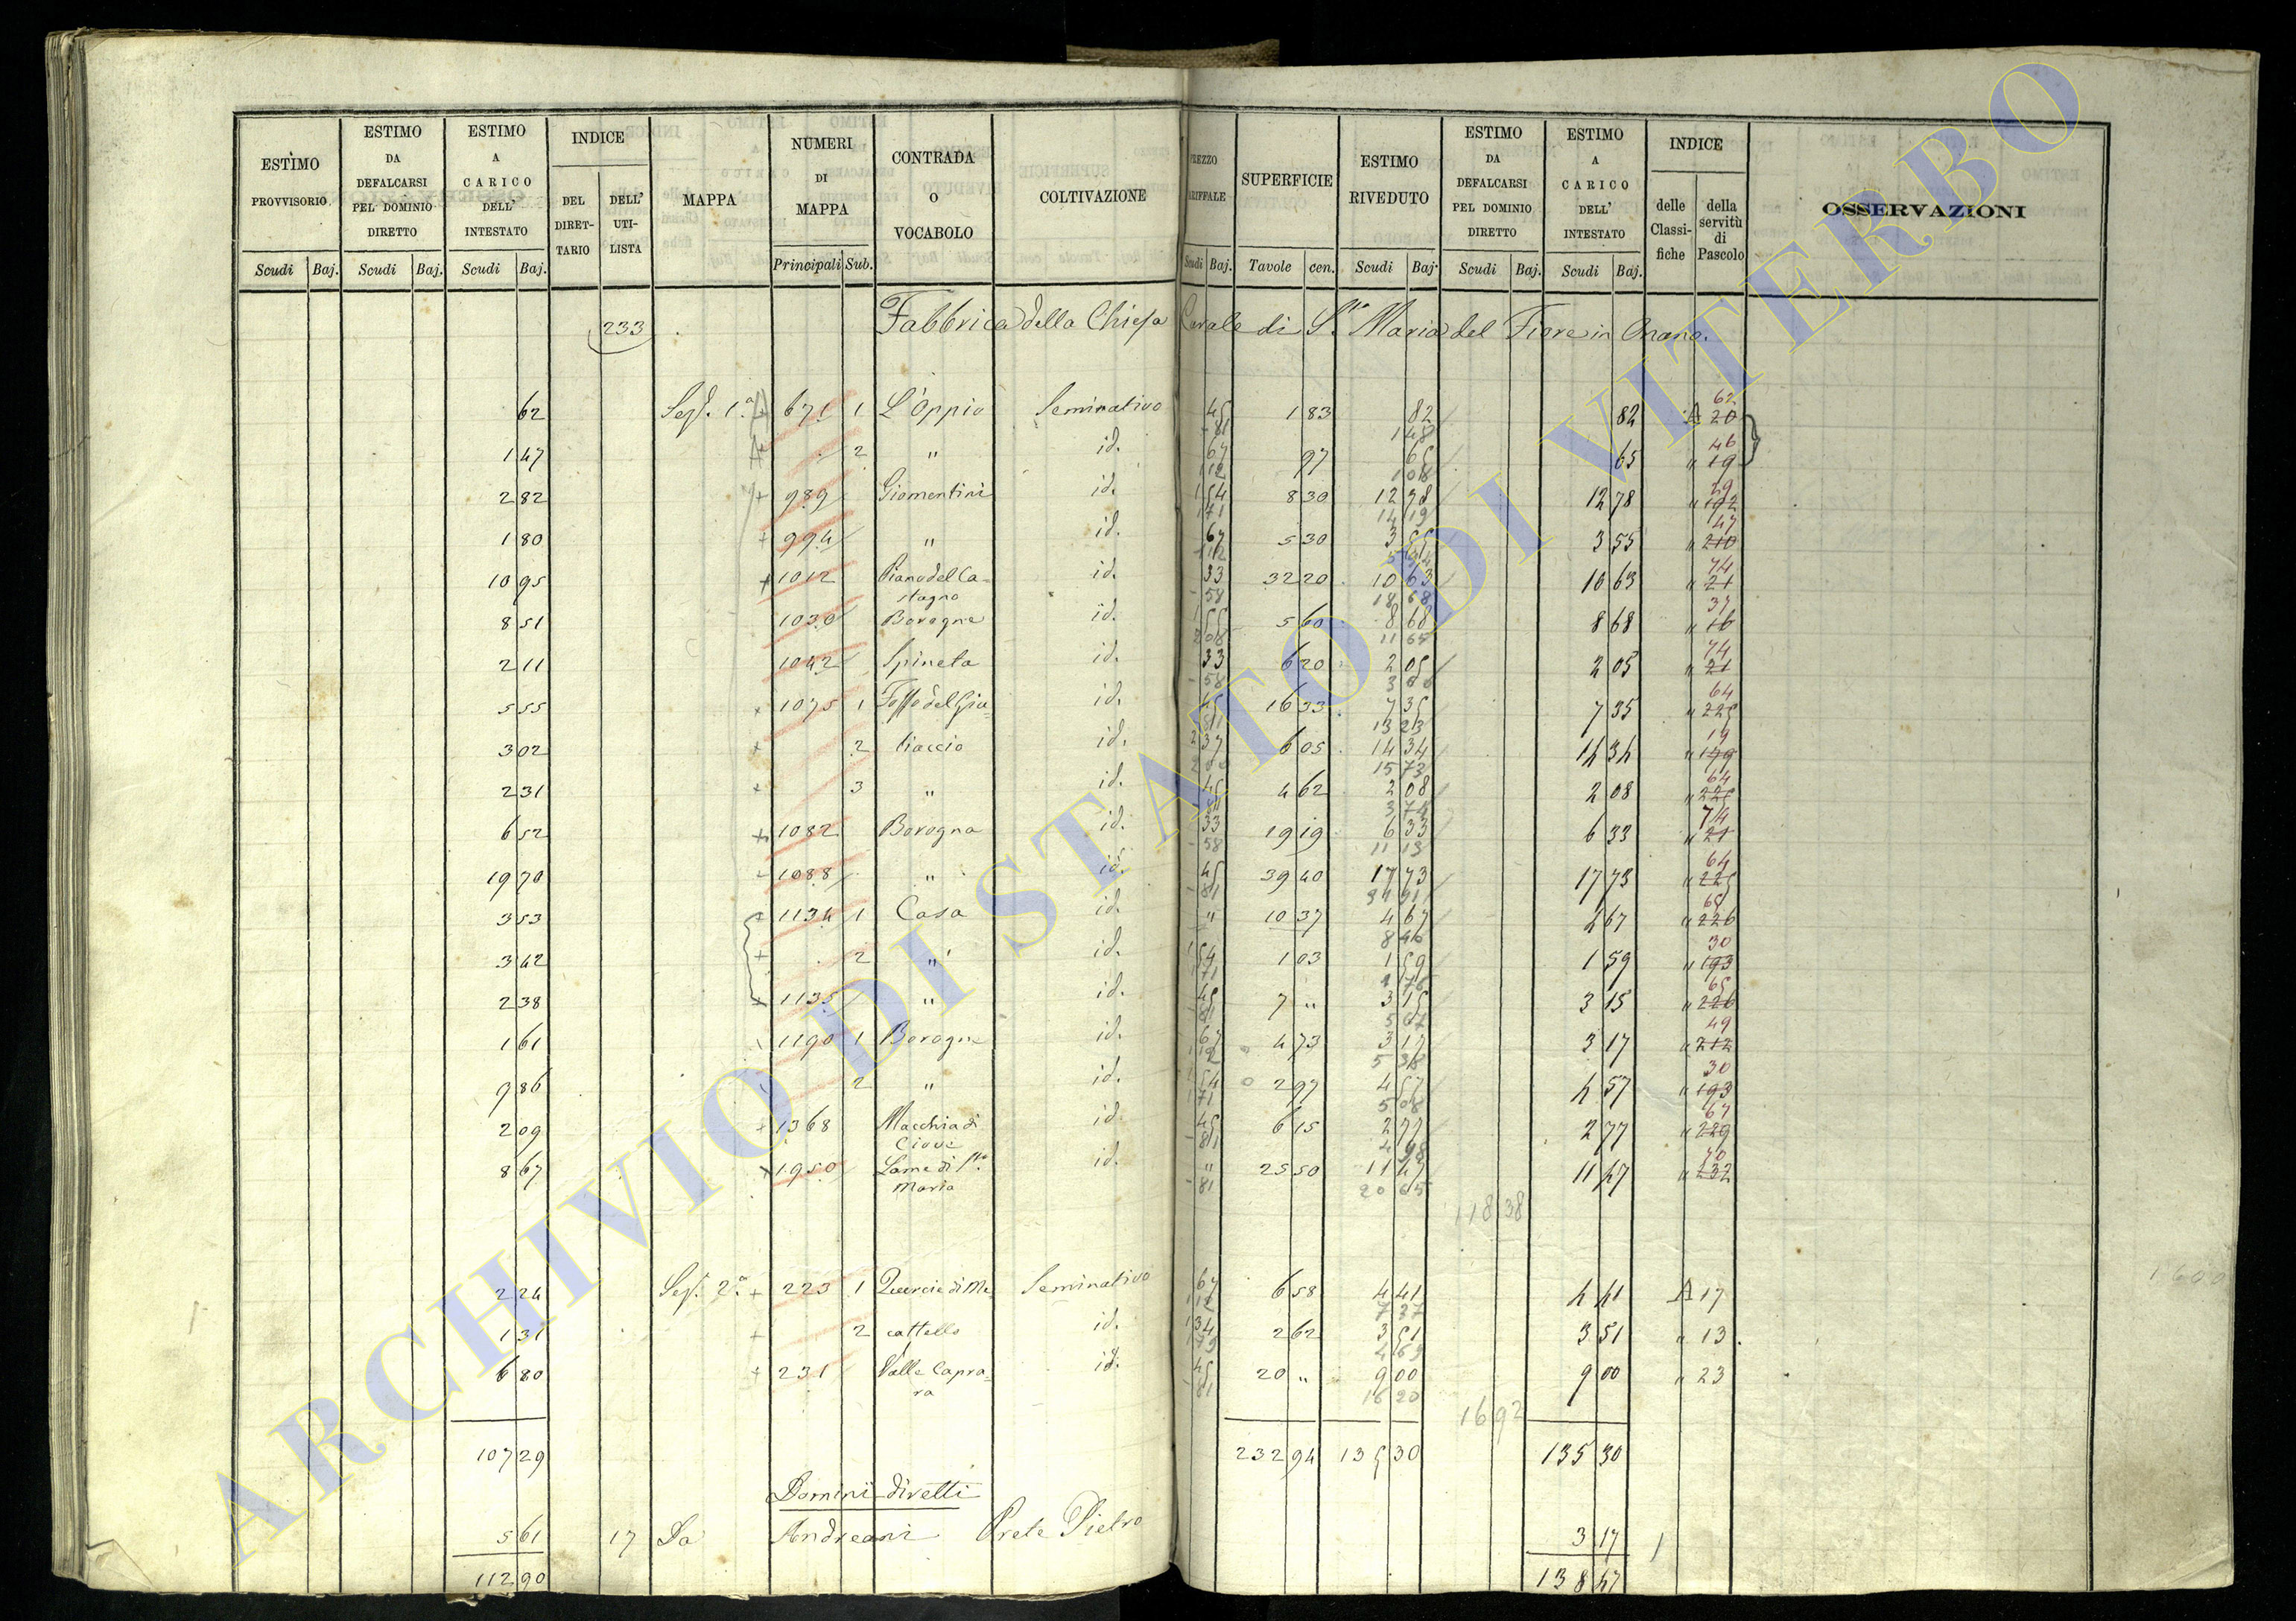 ESTIMO PROVVISORIO | ESTIMO DA DEFALCARSI PEL DOMINIO DIRETTO | ESTIMO A CARICO DELL' INTESTATO | INDICE | MAPPA | NUMERI DI MAPPA | CONTRADA O VOCABOLO | COLTIVAZIONE | PREZZO TARIFFALE | SUPERFICIE | ESTIMO RIVEDUTO | ESTIMO DA DEFALCARSI PEL DOMINIO DIRETTO | ESTIMO A CARICO DELL' INTESTATO | INDICE | OSSERVAZIONI
DEL DIRETTARIO | DELL' UTILISTA | delle Classifiche | della servitù di Pascolo
Scudi Baj. | Scudi Baj. | Scudi Baj. | Principali Sub. | Scudi Baj. | Tavole cen. | Scudi Baj. | Scudi Baj. | Scudi Baj.
233 Fabbrica della Chiesa Curale di S.ta Maria del Fiore in Onano.
62 Sez. 1.a 671 1 L'Oppio Seminativo 45 1 83 82 82 A 20 62
1 47 2 " id. 67 97 65 65 " 19 46
2 82 989 Giomentini id. 1 54 8 30 12 78 12 78 " 192 29
1 80 994 " id. 67 5 30 3 55 3 55 " 210 47
10 95 1012 Piano del Ca- id. 33 32 20 10 63 10 63 " 21 74
stagno
8 51 1030 Borogne id. 1 55 5 60 8 68 8 68 " 16 37
2 11 1042 Spineta id. 33 6 20 2 05 2 05 " 21 74
5 55 1075 1 Fosso del Gia- id. 45 16 33 7 35 7 35 " 225 64
3 02 2 ciaccio id. 2 37 6 05 14 34 14 34 " 179 19
2 31 3 " id. 45 4 62 2 08 2 08 " 225 64
6 52 1082 Borogna id. 33 19 19 6 33 6 33 " 21 74
19 70 1088 " id. 45 39 40 17 73 17 73 " 225 64
3 53 1134 1 Casa id. " 10 37 4 67 4 67 " 226 65
3 42 2 " id. 1 54 1 03 1 59 1 59 " 193 30
2 38 1135 " id. 45 7 " 3 15 3 15 " 226 65
1 61 1190 1 Borogne id. 67 4 73 3 17 3 17 " 212 49
9 86 2 " id. 1 54 2 97 4 57 4 57 " 193 30
2 09 1368 Macchia di id. 45 6 15 2 77 2 77 " 229 67
Giove
8 67 1950 Lame di S.ta id. " 25 50 11 47 11 47 " 232 70
Maria
118 38
2 24 Sez. 2.a 223 1 Quercie di Me Seminativo 67 6 58 4 41 4 41 A 17
1 31 2 cattello id. 1 34 2 62 3 51 3 51 " 13
6 80 231 Valle Capra- id. 45 20 " 9 00 9 00 " 23
ra
16 92
107 29 232 94 135 30 135 30
Domini diretti
5 61 17 Da Andreani Prete Pietro 3 17
112 90 138 47
1600
ARCHIVIO DI STATO DI VITERBO